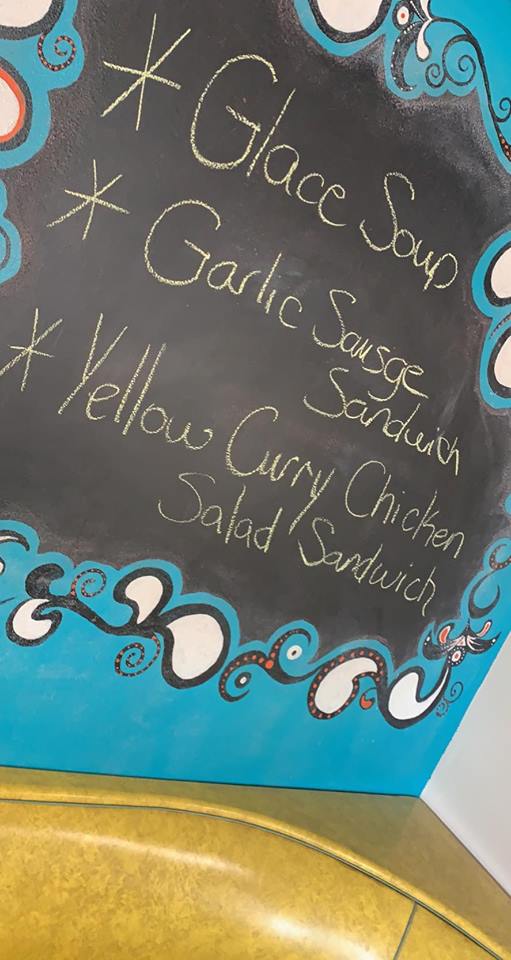 * Glace Soup
* Garlic Sausge
Sandwich
* Yellow Curry Chicken
Salad Sandwich